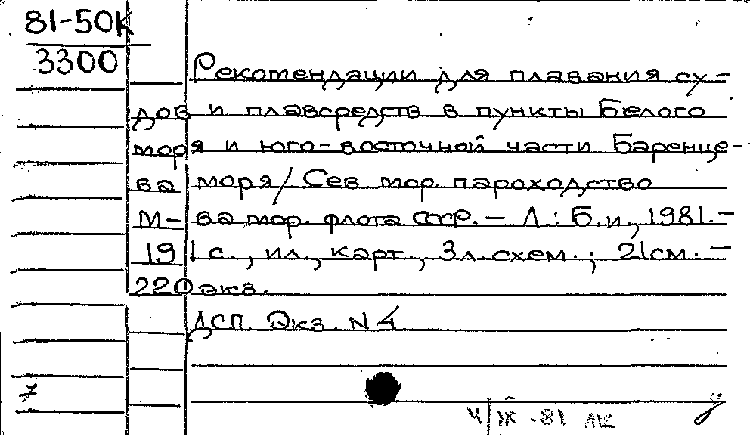 81-50К
3300
Рекомендации для плавания су-
дов и плавсредств в пункты Белого
моря и юго-восточной части Баренце-
ва моря/Сев. мор. пароходство
М-ва мор. флота СССР. – Л.: Б.и., 1981. –
191 с., ил., карт., 3 л. схем.; 21 см. –
220 экз.
ДСП. Экз. N 4